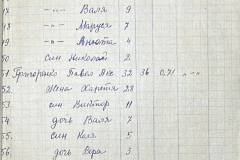 47 -"- Валя 9
48 -"- Маруся 7
49 -"- Анюта 4
50 син Николай 2
51 Григоренко Павел Як. 32 36 0,71 -"-
52. Жена Харетя 28
53. син Виктор 11
54 дочь Валя 7
55. син Коля 5
56. дочь Вера 3